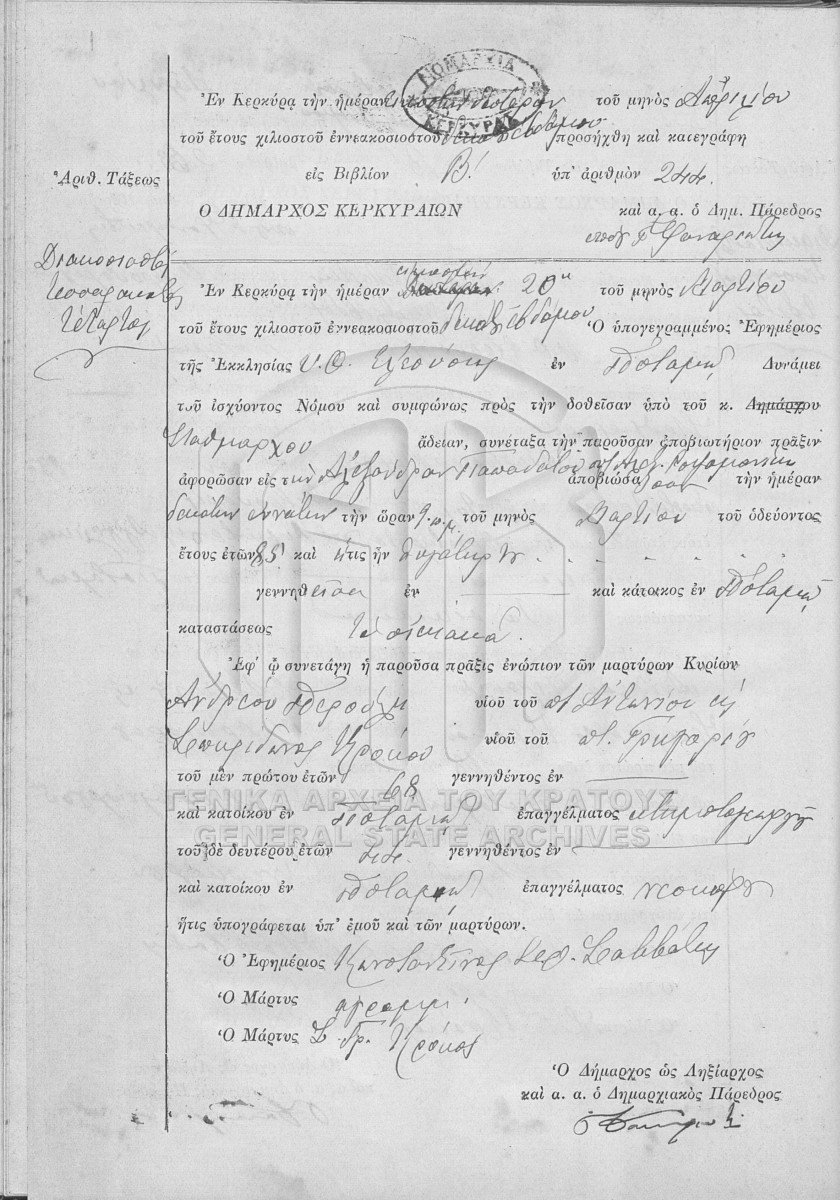 ΝΟΜΑΡΧΙΑ
ΚΕΡΚΥΡΑΣ
Ἐν Κερκύρᾳ τὴν ἡμέραν τοῦ μηνὸς Ἀπριλίου
τοῦ ἔτους χιλιοστοῦ ἐννεακοσιοστοῦ δεκάτου ἑβδόμου προσήχθη καὶ κατεγράφη
Ἀριθ. Τάξεως
εἰς Βιβλίον Β! ὑπ' ἀριθμὸν 244.
Ο ΔΗΜΑΡΧΟΣ ΚΕΡΚΥΡΑΙΩΝ καὶ α. α. ὁ Δημ. Πάρεδρος
Διακοσιοστὸς
Τεσσαρακοστὸς
Τέταρτος
Ἐν Κερκύρᾳ τὴν ἡμέραν εἰκοστὴν 20ην τοῦ μηνὸς Μαρτίου
τοῦ ἔτους χιλιοστοῦ ἐννεακοσιοστοῦ δεκάτου ἑβδόμου Ὁ ὑπογεγραμμένος Ἐφημέριος
τῆς Ἐκκλησίας Υ. Θ. Ἐλεούσης ἐν Ποταμῷ Δυνάμει
τοῦ ἰσχύοντος Νόμου καὶ συμφώνως πρὸς τὴν δοθεῖσαν ὑπὸ τοῦ κ. Δημάρχου
Σταθμάρχου ἄδειαν, συνέταξα τὴν παροῦσαν ἀποβιωτήριον πρᾶξιν
ἀφορῶσαν εἰς τὴν Ἀλεξάνδραν Παπαδάτου ἀποβιώσασαν τὴν ἡμέραν
δεκάτην ἐννάτην τὴν ὥραν 9 π.μ. τοῦ μηνὸς Μαρτίου τοῦ ὁδεύοντος
ἔτους ἐτῶν 85 καὶ ἥτις ἦν θυγάτηρ
γεννηθεῖσα ἐν καὶ κάτοικος ἐν Ποταμῷ
καταστάσεως
Ἐφ' ᾧ συνετάγη ἡ παροῦσα πρᾶξις ἐνώπιον τῶν μαρτύρων Κυρίων
Ἀνδρέου υἱοῦ τοῦ ποτ. Ἀντωνίου καὶ
Σπυρίδωνος Κρόκου υἱοῦ τοῦ ποτ. Γρηγορίου
τοῦ μὲν πρώτου ἐτῶν 68 γεννηθέντος ἐν
ΓΕΝΙΚΑ ΑΡΧΕΙΑ ΤΟΥ ΚΡΑΤΟΥΣ
καὶ κατοίκου ἐν Ποταμῷ ἐπαγγέλματος κτηματογεωργοῦ
GENERAL STATE ARCHIVES
τοῦ δὲ δευτέρου ἐτῶν 44. γεννηθέντος ἐν
καὶ κατοίκου ἐν Ποταμῷ ἐπαγγέλματος νεοκόρου
ἥτις ὑπογράφεται ὑπ' ἐμοῦ καὶ τῶν μαρτύρων.
Ὁ Ἐφημέριος Κωνσταντῖνος
Ὁ Μάρτυς
Ὁ Μάρτυς Σ. Γρ. Κρόκος
Ὁ Δήμαρχος ὡς Ληξίαρχος
καὶ α. α. ὁ Δημαρχιακὸς Πάρεδρος